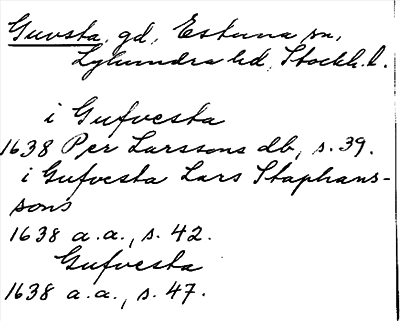 Guvsta, gd, Estuna sn,
Lyhundra hd, Stockh. l.
i Gufvesta
1638 Per Larssons db, s. 39.
i Gufvesta Lars Staphans-
sons
1638 a.a., s. 42.
Gufvesta
1638 a.a., s. 47.